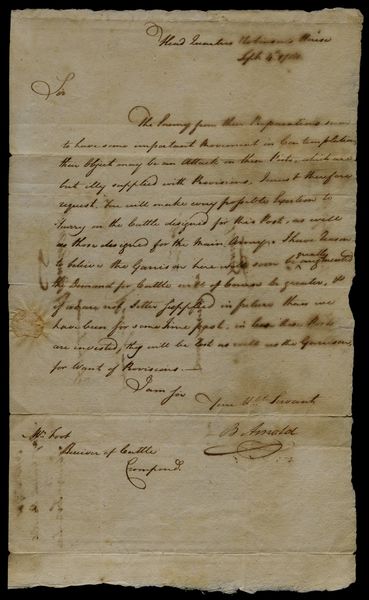 Head Quarters Robinsons House
Sept. 4th 1780
Sir
The Enemy from their Preparations seem
to have some important Movement in Contemplation
their Object may be an Attack on these Posts, which are
but illy supplied with Provisions. I must therefore
request You will make every possible Exertion to
hurry on the Cattle designed for this Post, as well
as those designed for the Main Army, I have Reason
to believe the Garrison here will soon be greatly augmented
the Demand for Cattle will of Course be greater, &
if we are not better supplied in future than we
have been for some time past, in Case these Posts
are invested, they will be lost as well as the Garrison,
for Want of Provisions.—
I am Sir
Your Servant
B Arnold
Mr. Foot
Receiver of Cattle
Crompond.